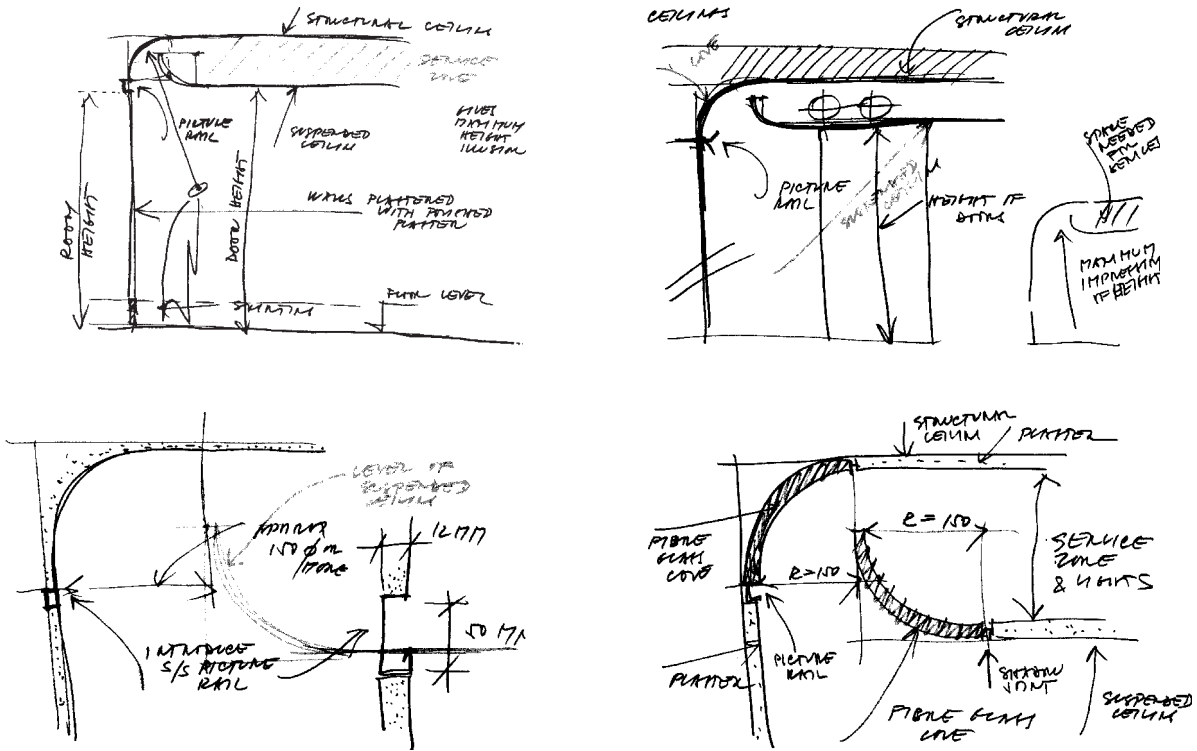 STRUCTURAL CEILING
SERVICE
ZONE
GIVES
MAXIMUM
HEIGHT
ILLUSION
PICTURE
RAIL
SUSPENDED
CEILING
ROOM
HEIGHT
DOOR HEIGHT
WALLS PLASTERED
WITH POLISHED
PLASTER
SKIRTING
FLOOR LEVEL
CEILINGS
STRUCTURAL
CEILING
COVE
PICTURE
RAIL
SUSPENDED
CEILING
HEIGHT OF
DOORS
SPACE
NEEDED
FOR
SERVICES
MAXIMUM
IMPRESSION
OF HEIGHT
LEVEL OF
SUSPENDED
CEILING
APPROX
150 Ø OR
MORE
12 MM
50 MM
INTRODUCE
S/S PICTURE
RAIL
STRUCTURAL
CEILING
PLASTER
FIBRE
GLASS
COVE
R=150
R=150
SERVICE
ZONE
& LIGHTS
PICTURE
RAIL
PLASTER
SHADOW
JOINT
FIBRE GLASS
COVE
SUSPENDED
CEILING